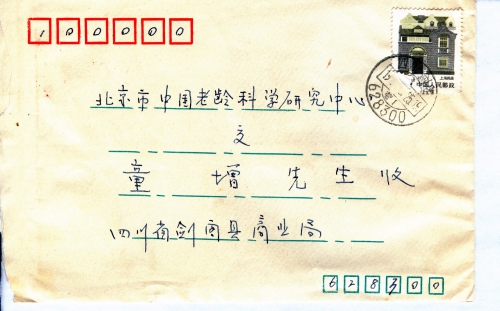 100000
北京市中国老龄科学研究中心
交
童增先生收
四川省剑阁县商业局
628300
中国人民邮政
628300